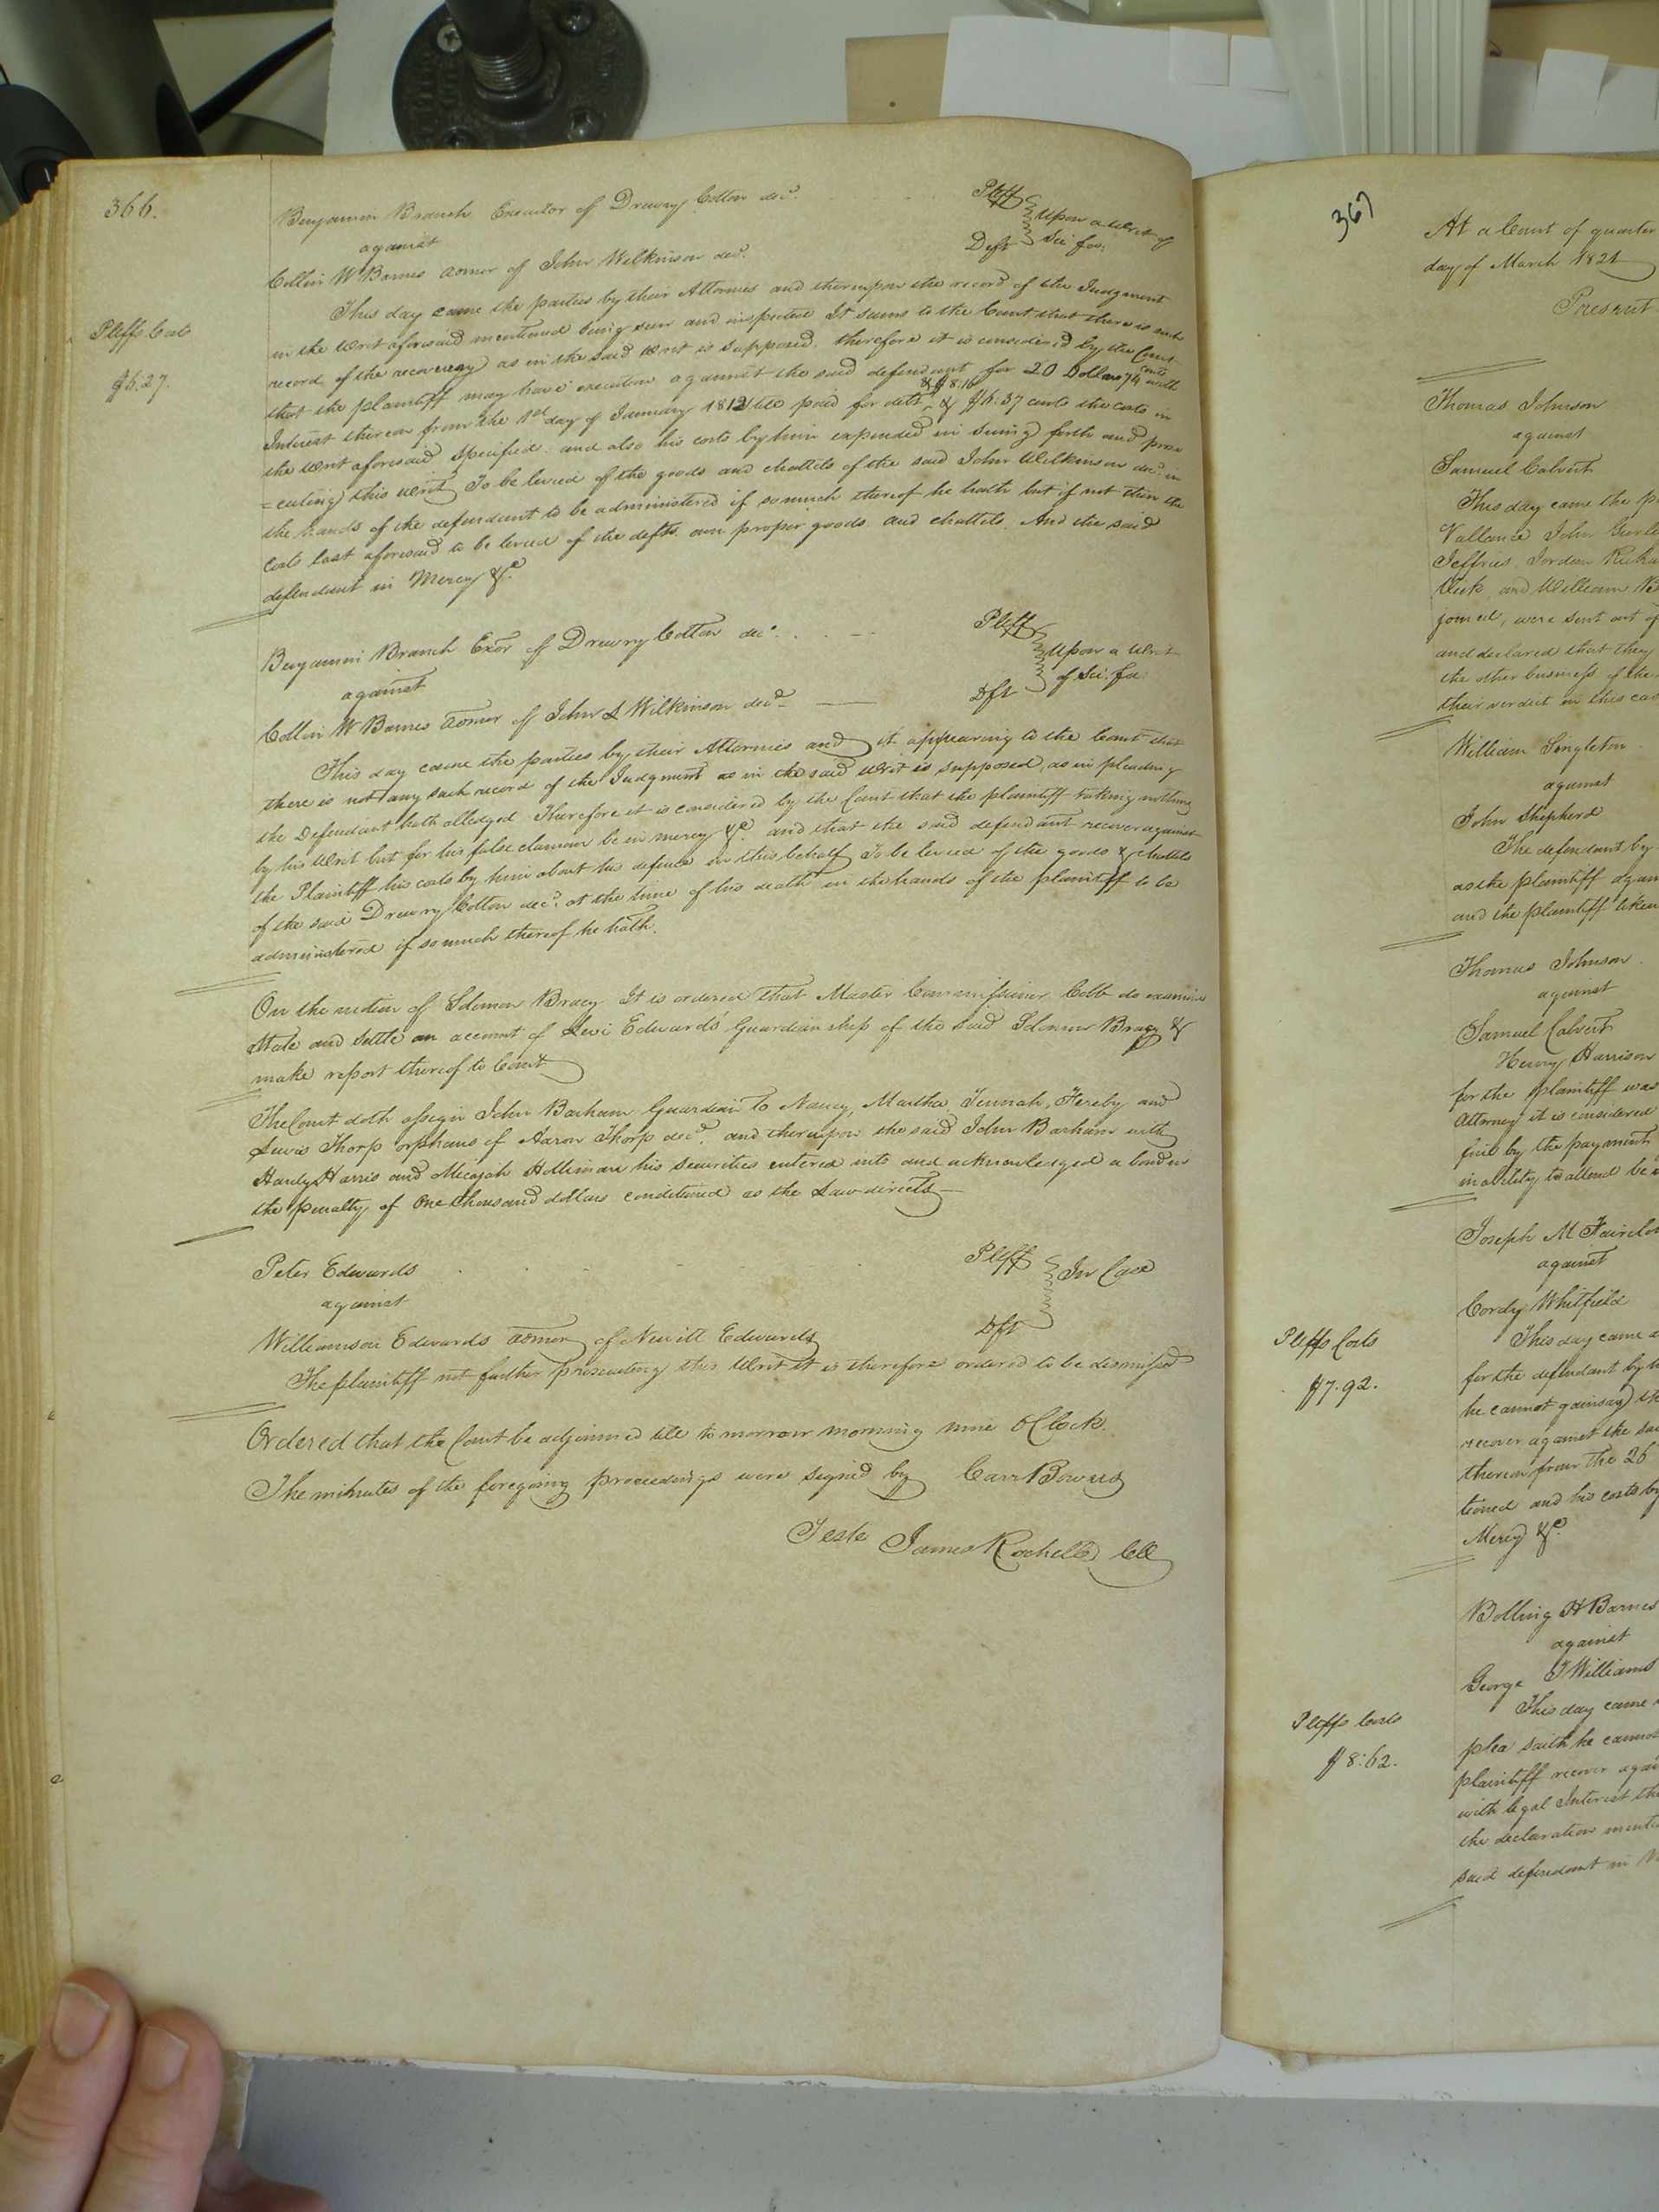 366.
Benjamin Branch Executor of Drewry Cotton decd. Pltff
against Upon a Writ of
Collin W Barnes admor of John Wilkinson decd. Deft Sci fa:
This day came the parties by their Attornies and thereupon the record of the Judgment
in the Writ aforesaid mentioned being seen and inspected It seems to the Court that there is such
Pltffs Costs
record of the recoveray as in the said Writ is supposed. therefore it is considered by the Court
$6.27.
that the plaintiff may have execution against the said defendant for 20 Dollars 74 cents with
Interest thereon from the 1st day of January 1812 till paid for debt, & $8.16 & $6.37 cents the costs in
the Writ aforesaid specified. and also his costs by him expended in suing forth and prose
=cuting this Writ To be levied of the goods and chattels of the said John Wilkinson decd. in
the hands of the defendant to be administered if so much thereof he hath but if not then the
Costs last aforesaid to be levied of the defts. own proper goods and chattels. And the said
defendant in Mercy &c.
Benjamin Branch Exor of Drewry Cotton decd. Pltff
against Upon a Writ
Collin W Barnes admor of John S Wilkinson decd Dft of Sci. fa:
This day came the parties by their Attornies and it appearing to the Court that
there is not any such record of the Judgment as in the said Writ is supposed, as in pleading
the Defendant hath alledged Therefore it is considered by the Court that the plaintiff taking nothing
by his Writ but for his false clamour be in mercy &c and that the said defendant recover against
the Plaintiff his costs by him about his defence in this behalf To be levied of the goods & chattels
of the said Drewry Cotton decd. at the time of his death in the hands of the plaintiff to be
administered if so much thereof he hath.
On the motion of Solomon Bracy It is ordered that Master Commissioner Cobb do examine
State and Settle an account of Levi Edwards' Guardianship of the said Solomon Bracy &
make report thereof to Court
The Court doth assign John Barham Guardian to Nancy, Martha, Tennah, Fereby and
Lewis Thorp orphans of Aaron Thorp decd. and thereupon the said John Barham with
Hardy Harris and Micajah Holliman his Securities entered into and acknowledged a bond in
the penalty of One thousand dollars conditioned as the Law directs
Peter Edwards Pltff
against In Case
Williamson Edwards admor of Newitt Edwards Dft
The plaintiff not further prosecuting this Writ it is therefore ordered to be dismissed
Ordered that the Court be adjourned till to morrow morning nine OClock.
The minutes of the foregoing proceedings were signed by Carr Bowers
Teste James Rochelle Cll
367
At a Court of quarter
day of March 1821
Present
Thomas Johnson
against
Samuel Calvert
This day came the p
Vallance John Gurle
Jeffries, Jordan Richa
Vick, and William
joined, were sent out of
and declared that they
the other business of the
their verdict in this cas
William Singleton.
against
John Shepherd
The defendant by
as the plaintiff again
and the plaintiff liken
Thomas Johnson.
against
Samuel Calvert
Henry Harrison
for the plaintiff was
Attorney it is considered
fine by the payment
inability to attend be
Joseph M Fairclo
against
Cordy Whitfield
Pltffs Costs
This day came a
$7.92.
for the defendant by
he cannot gainsay the
recover against the sai
thereon from the 26
tioned and his costs by
Mercy &c.
Bolling H Barnes
against
George J Williams
Pltffs Costs
This day came
$8.62.
plea saith he cannot
plaintiff recover again
with legal Interest the
the declaration menti
said defendant in